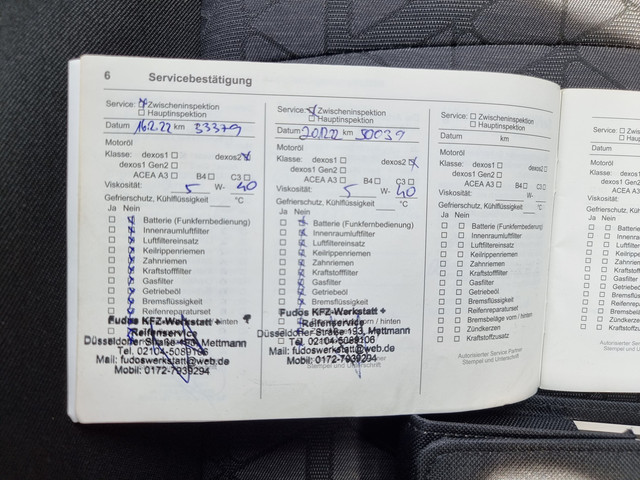 6 Servicebestätigung
Service: Zwischeninspektion
Hauptinspektion
Datum 16.2.22 km 33379
Motoröl
Klasse: dexos1 dexos2
dexos1 Gen2
ACEA A3 B4 C3
Viskosität: 5 W- 40
Gefrierschutz, Kühlflüssigkeit °C
Ja Nein
Batterie (Funkfernbedienung)
Innenraumluftfilter
Luftfiltereinsatz
Keilrippenriemen
Zahnriemen
Kraftstofffilter
Gasfilter
Getriebeöl
Bremsflüssigkeit
Reifenreparaturset
hinten
Fudos KFZ-Werkstatt +
Reifenservice
Düsseldorfer Straße 193, Mettmann
Tel. 02104-5089106
Mail: fudoswerkstatt@web.de
Mobil: 0172-7939294
Service: Zwischeninspektion
Hauptinspektion
Datum 20.12.22 km 50039
Motoröl
Klasse: dexos1 dexos2
dexos1 Gen2
ACEA A3 B4 C3
Viskosität: 5 W- 40
Gefrierschutz, Kühlflüssigkeit °C
Ja Nein
Batterie (Funkfernbedienung)
Innenraumluftfilter
Luftfiltereinsatz
Keilrippenriemen
Zahnriemen
Kraftstofffilter
Gasfilter
Getriebeöl
Bremsflüssigkeit
Fudos KFZ-Werkstatt +
Reifenservice
Düsseldorfer Straße 193, Mettmann
Tel. 02104-5089106
Mail: fudoswerkstatt@web.de
Mobil: 0172-7939294
Stempel und Unterschrift
Service: Zwischeninspektion
Hauptinspektion
Datum km
Motoröl
Klasse: dexos1 dexos2
dexos1 Gen2
ACEA A3 B4 C3
Viskosität: W-
Gefrierschutz, Kühlflüssigkeit °C
Ja Nein
Batterie (Funkfernbedienung)
Innenraumluftfilter
Luftfiltereinsatz
Keilrippenriemen
Zahnriemen
Kraftstofffilter
Gasfilter
Getriebeöl
Bremsflüssigkeit
Reifenreparaturset
Bremsbeläge vorn / hinten
Zündkerzen
Kraftstoffzusatz
Autorisierter Service Partner
Stempel und Unterschrift
Service:
Datum
Motoröl
Klasse: dexos1
dexos1 Gen2
ACEA A3
Viskosität:
Gefrierschutz, Kühlflüssigkeit
Ja Nein
Batterie
Innenraumluftfilter
Luftfiltereinsatz
Keilrippenriemen
Zahnriemen
Kraftstofffilter
Gasfilter
Getriebeöl
Bremsflüssigkeit
Reifenreparaturset
Bremsbeläge
Zündkerzen
Kraftstoffzusatz